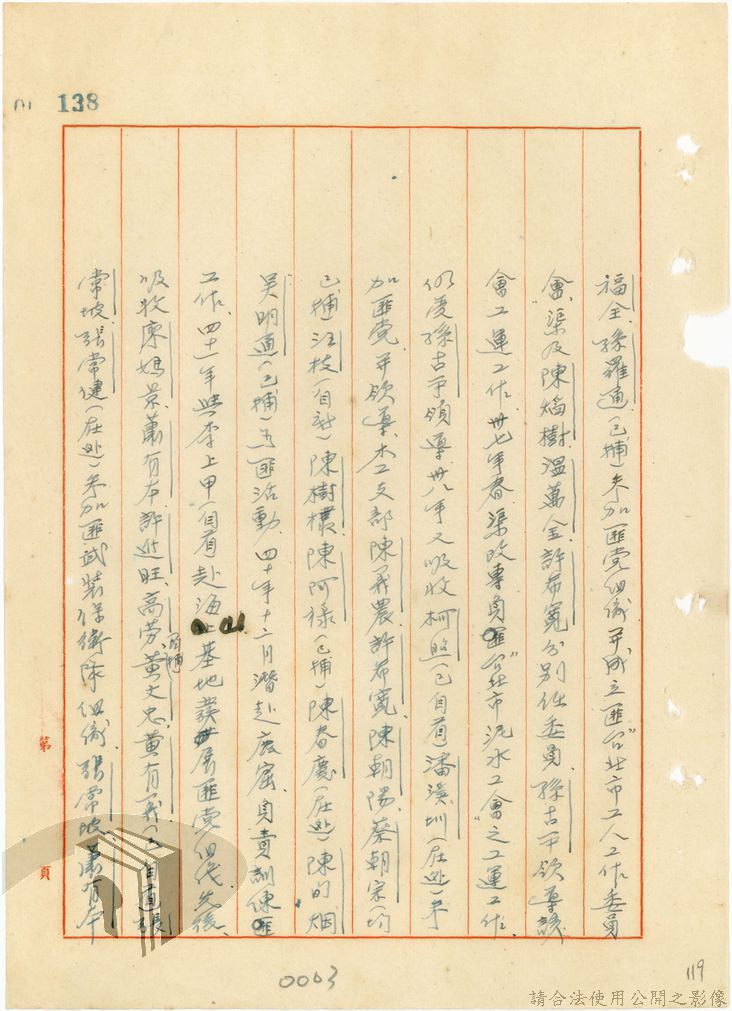 138
福全、孫羅通(已捕)參加匪党組織并成立匪“台北市工人工作委員
會”渠及陳焰樹温萬金許希寬分別任委員、孫古平領導該
會工運工作卅七年春、渠改專負匪“台北市泥水工會”之工運工作、
仍受孫古平領導卅八年又吸收柯照(已自首)潘溪圳(在逃)參
加匪党、并領導木工支部陳義農許希寬陳朝陽蔡朝宗(均
已捕)江枝(自新)陳樹欉陳阿祿(已捕)陳春慶(在逃)陳的烟
吳明通(已捕)這匪活動四十年十二月潛赴鹿窟負責訓練匪
工作、四十一年與李上甲(自首)赴海山基地發展匪党組織先後
吸收廖媽景蕭有本許近旺高芳(已捕)黃文忠黃有義(已自首)張
常坡張常健(在逃)參加匪武裝保衛隊組織、張常坡蕭有本
第
頁
0003
119
請合法使用公開之影像